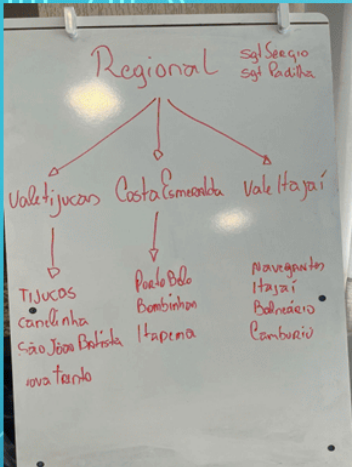 Regional
Sgt Sergio
Sgt Padilha
Vale tijucas
Costa Esmeralda
Vale Itajaí
Tijucos
Canelinha
São João Batista
nova Trento
Porto Belo
Bombinhas
Itapema
Navegantes
Itajaí
Balneário
Camboriú